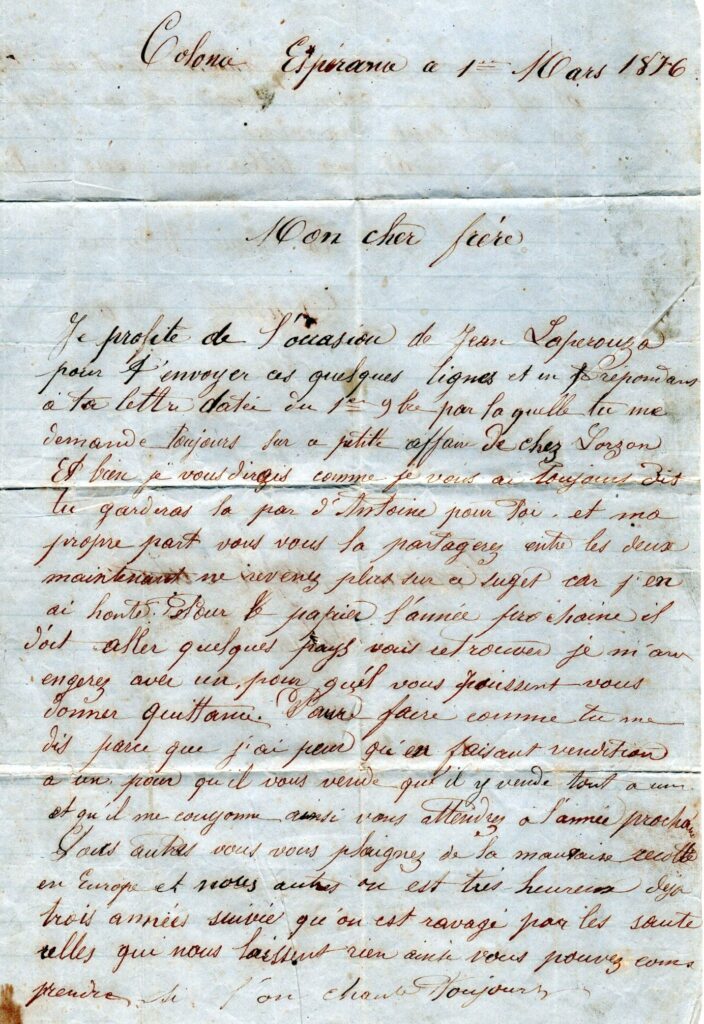 Colona Espérama a 1er Mars 1876
Mon cher frére
Je profite de l'occasion de Jean Laperouza
pour t'envoyer ces quelques lignes et en répondans
à ta lettre datée du 1er 9bre par la quelle tu me
demande toujours sur a petite affair de chez Lorzon
Et bien je vous dirais comme je vous ai toujours dit
tu garderas la par d'Antoine pour toi. et ma
propre part vous vous la partagerez entre les deux
maintenant ne revenez plus sur ce suget car j'en
ai honte. Pour le papier l'année prochaine il
doit aller quelques pays vous retrouver je m'arr
engerez aver un, pour qu'il vous puissent vous
donner quittance. Pour faire comme tu me
dis parce que j'ai peur qu'en faisant vendition
a un pour qu'il vous vende qu'il y vende tout a un
et qu'il me couyonne ainsi vous attendrez a l'année prochain
Vous autres vous vous plaignez de la mauvaise recolte
en Europe et nous autres on est très heureux deja
trois années suivie qu'on est ravagé par les saute
relles qui nous laissent rien ainsi vous pouvez com
prendre si l'on chante Toujours